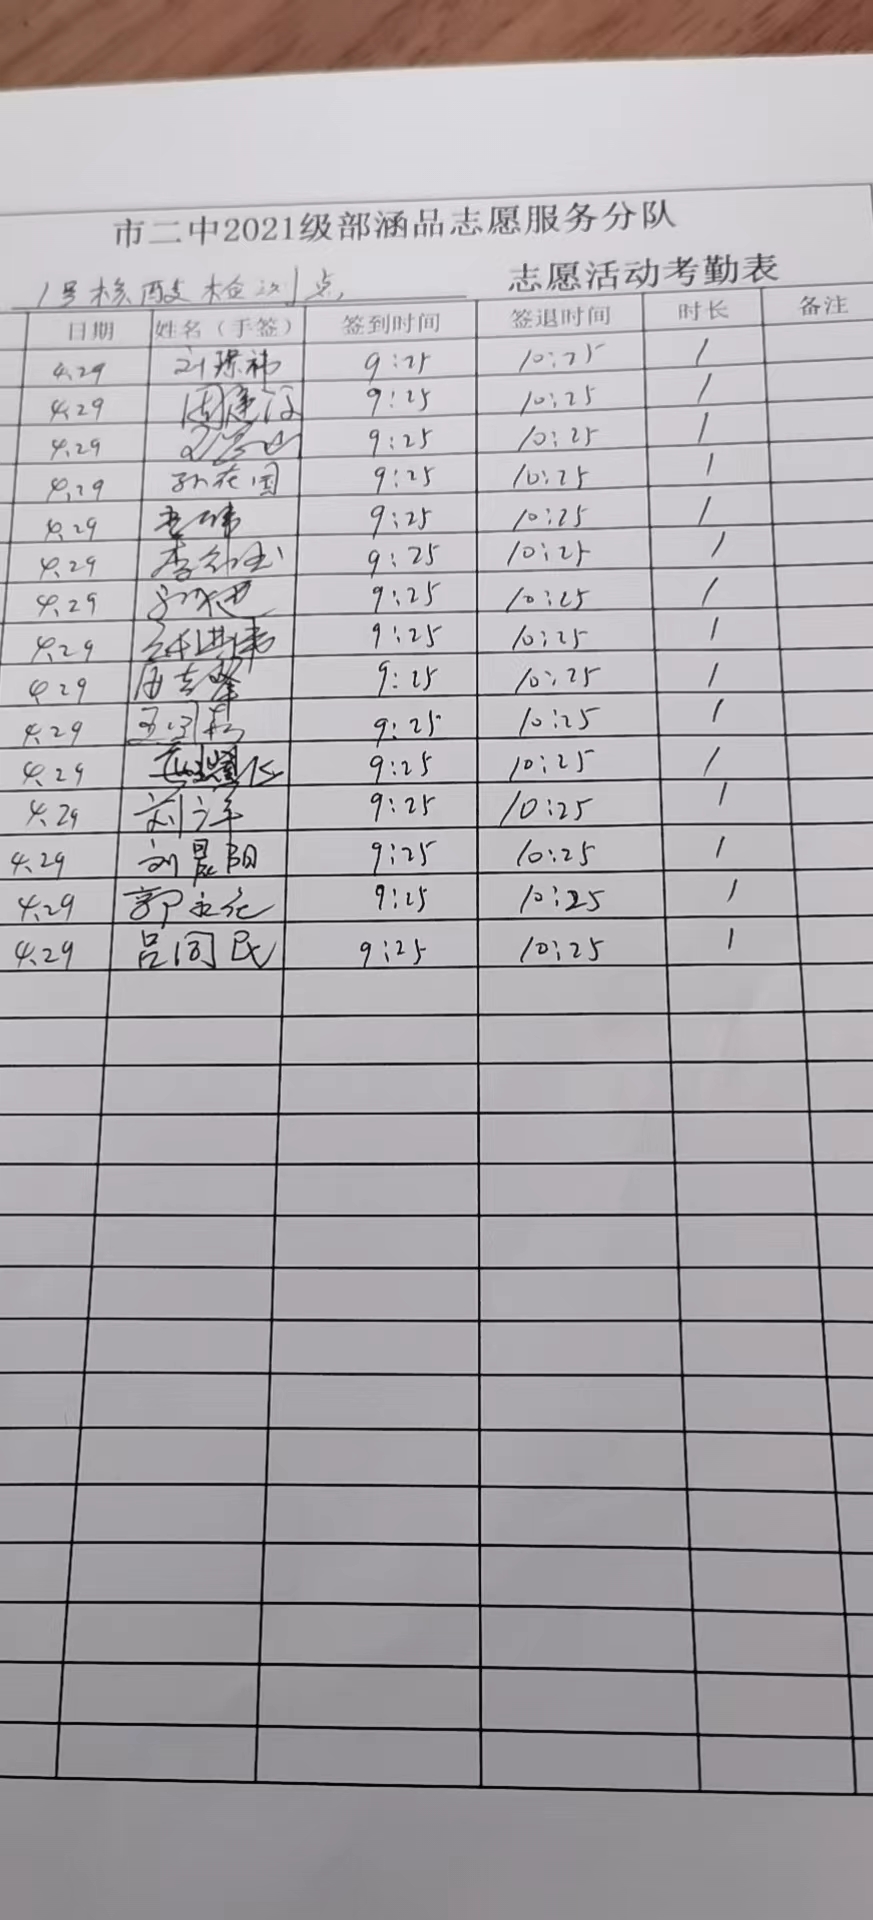 市二中2021级部涵品志愿服务分队
1号核酸检测点 志愿活动考勤表
日期 姓名（手签） 签到时间 签退时间 时长 备注
4.29 9:25 10:25 1
4.29 9:25 10:25 1
4.29 9:25 10:25 1
4.29 9:25 10:25 1
4.29 9:25 10:25 1
4.29 9:25 10:25 1
4.29 9:25 10:25 1
4.29 9:25 10:25 1
4.29 9:25 10:25 1
4.29 9:25 10:25 1
4.29 9:25 10:25 1
4.29 刘洋 9:25 10:25 1
4.29 刘晨阳 9:25 10:25 1
4.29 9:25 10:25 1
4.29 吕同民 9:25 10:25 1